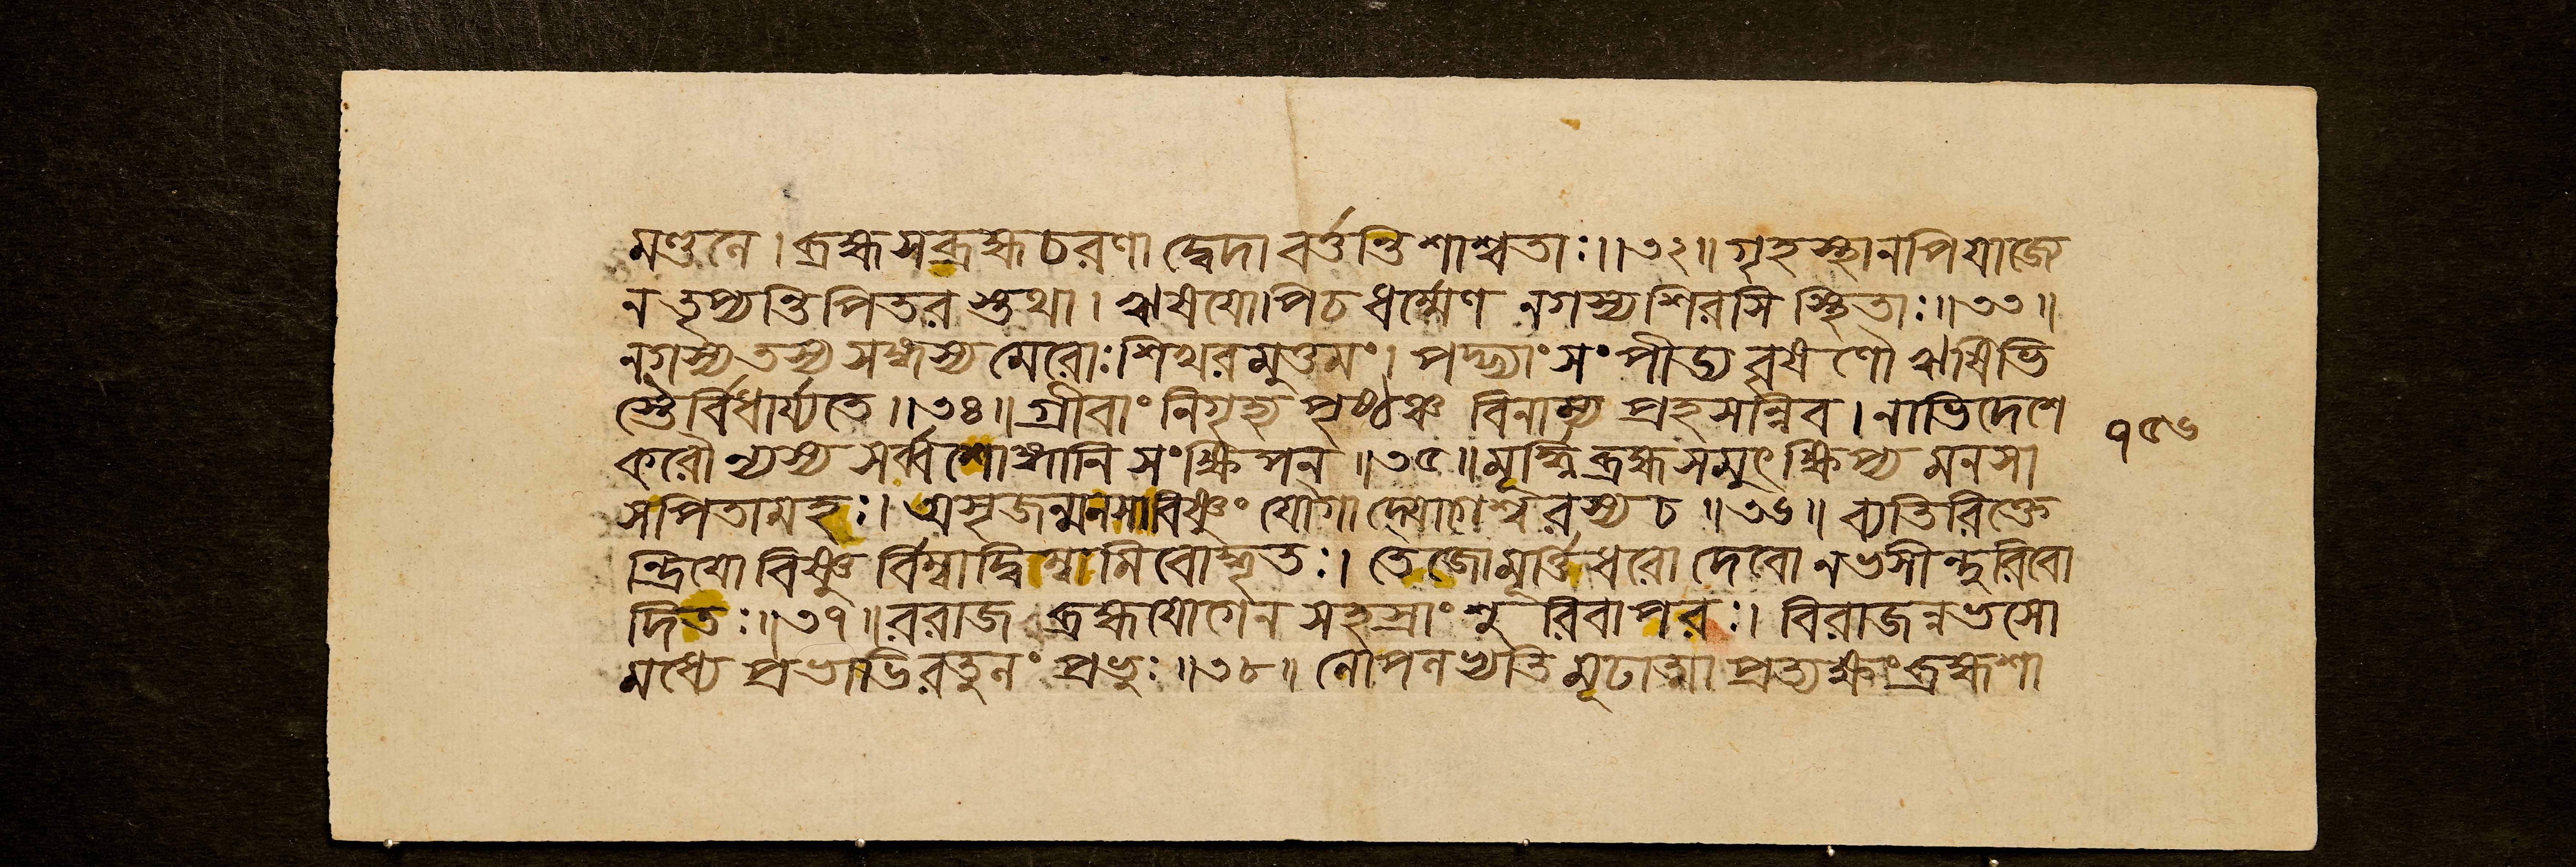 মণ্ডনে । ব্রহ্মসব্রহ্মচরণা দ্বেদা বর্ত্তন্তি শাশ্বতাঃ ॥ ৩২ ॥ গৃহস্থানপি যাজে
ন তৃপ্যন্তি পিতরস্তথা । ঋষয়োপি চ ধর্ম্মেণ নগস্য শিরসি স্থিতাঃ ॥ ৩৩ ॥
নগস্য তস্য সহ্যস্য মেরোঃ শিখরমুত্তমং । পদ্ভ্যাং সংপীড্য বৃষণৌ ঋষিভি
স্তৈর্বিধার্য্যতে ॥ ৩৪ ॥ গ্রীবাং নিগৃহ্য পৃষ্ঠঞ্চ বিনাম্য প্রহসন্নিব । নাভিদেশে
করৌ ন্যস্য সর্ব্বশোঙ্গানি সংক্ষিপন্ ॥ ৩৫ ॥ মূর্দ্ধ্নি ব্রহ্ম সমুৎক্ষিপ্য মনসা
স পিতামহঃ । অসৃজন্মনসা বিষ্ণুং যোগাদ্যোগেশ্বরস্য চ ॥ ৩৬ ॥ ব্যতিরিক্তে
ন্দ্রিয়ো বিষ্ণু র্বিম্বাদ্বিম্বামিবোদ্ধৃতঃ । তেজোমূর্ত্তিধরো দেবো নভসীন্দুরিবো
দিতঃ ॥ ৩৭ ॥ ররাজ ব্রহ্মযোগেন সহস্রাংশু রিবাপরঃ । বিরাজন্নভসো
মধ্যে প্রভাভিরতুলং প্রভুঃ ॥ ৩৮ ॥ নোপলভ্যতি মূঢাত্মা প্রত্যক্ষং ব্রহ্মশা
১৫৬